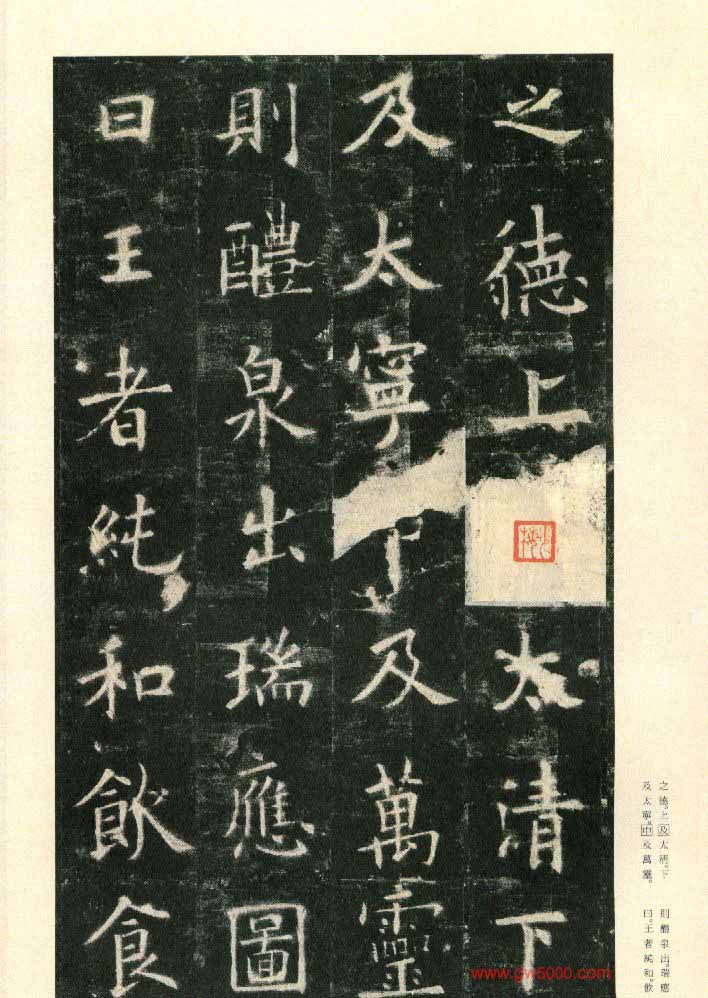 之德上太清下
及太寧及萬靈
則醴泉出瑞應圖
曰王者純和飲食
之德。上及太清。下
及太寧。中及萬靈。
則醴泉出。瑞應
曰。王者純和。飲